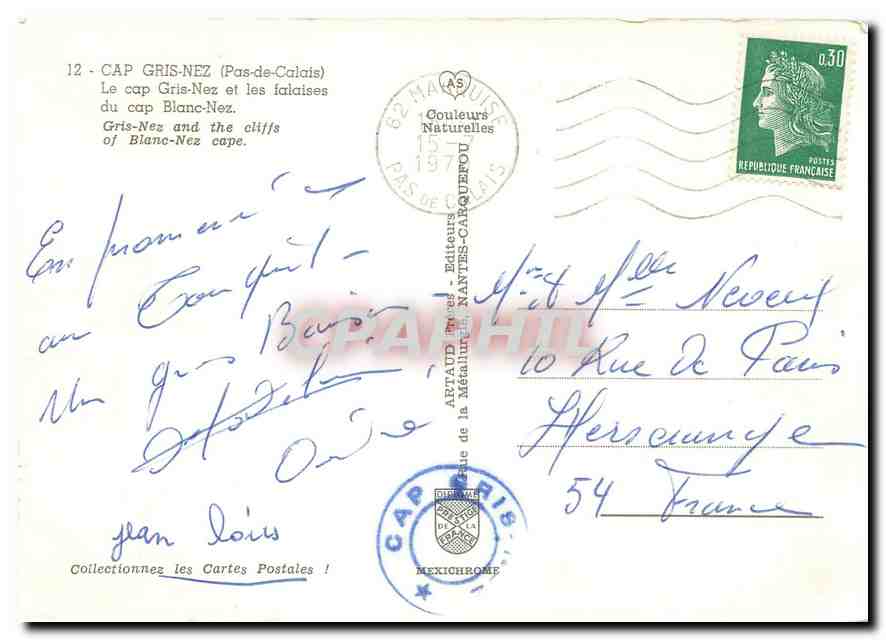 12 - CAP GRIS-NEZ (Pas-de-Calais)
Le cap Gris-Nez et les falaises
du cap Blanc-Nez.
Gris-Nez and the cliffs
of Blanc-Nez cape.
AS
Couleurs
Naturelles
62 MARQUISE
15 - 7
197
PAS DE CALAIS
0,30
POSTES
REPUBLIQUE FRANÇAISE
En
au Touquet -
Un gros Baiser
jean loüis
Collectionnez les Cartes Postales !
ARTAUD Frères - Editeurs
Rue de la Métallurgie, NANTES-CARQUEFOU
CPAPHIL
Mr et Melle
10 Rue De Paris
Herserange
54 France
CAP GRIS-
DIPLOME
PRESTIGE
DE LA
FRANCE
MEXICHROME